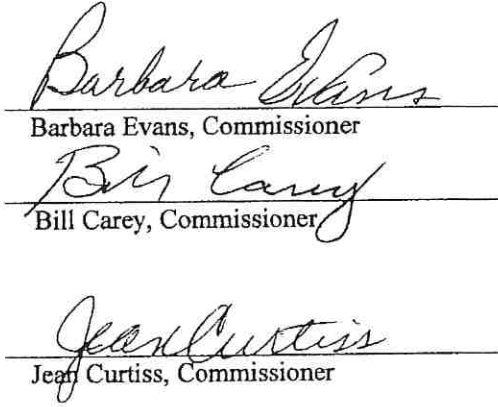 Barbara Evans
Barbara Evans, Commissioner
Bill Carey
Bill Carey, Commissioner
Jean Curtiss
Jean Curtiss, Commissioner